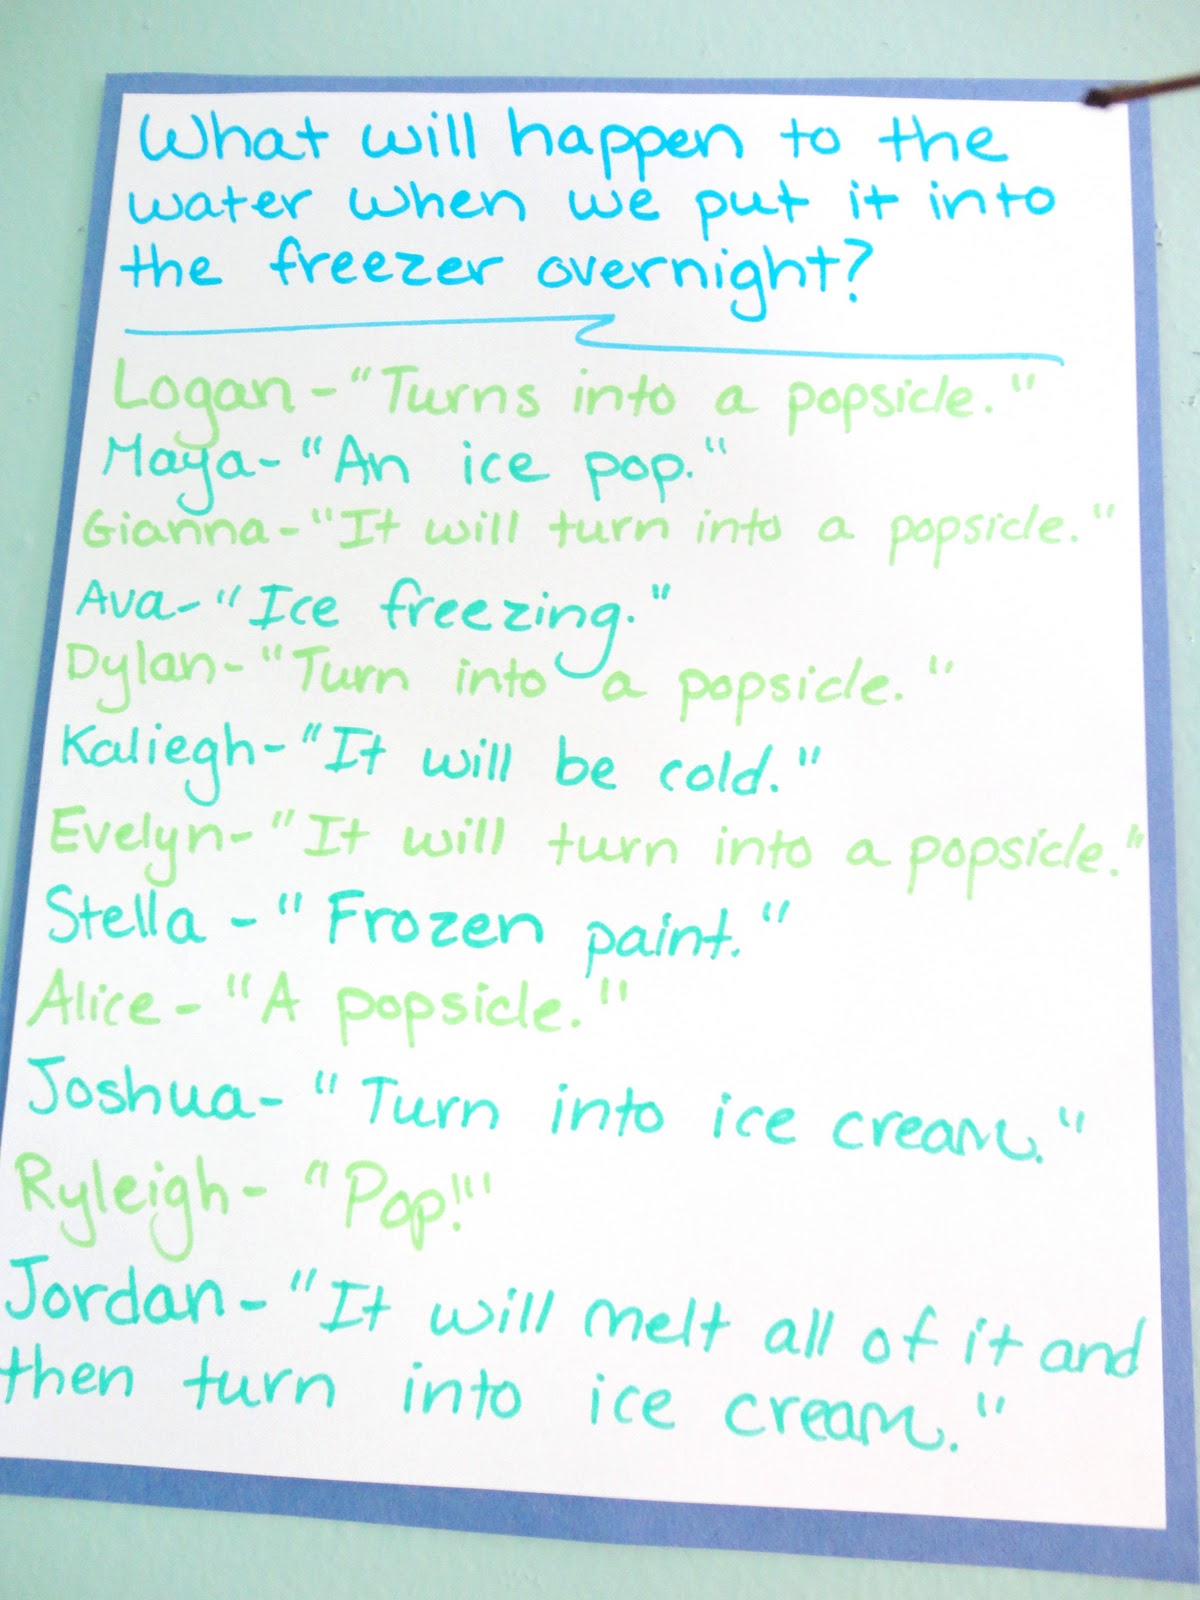 What will happen to the
water when we put it into
the freezer overnight?
Logan - "Turns into a popsicle."
Maya - "An ice pop."
Gianna - "It will turn into a popsicle."
Ava - "Ice freezing."
Dylan - "Turn into a popsicle."
Kaliegh - "It will be cold."
Evelyn - "It will turn into a popsicle."
Stella - "Frozen paint."
Alice - "A popsicle."
Joshua - "Turn into ice cream."
Ryleigh - "Pop!"
Jordan - "It will melt all of it and
then turn into ice cream."